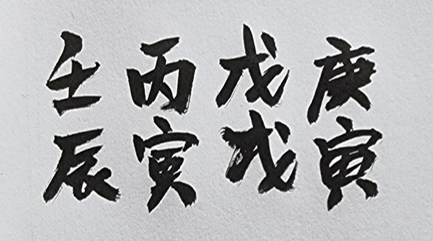 庚寅
戊戌
丙寅
壬辰